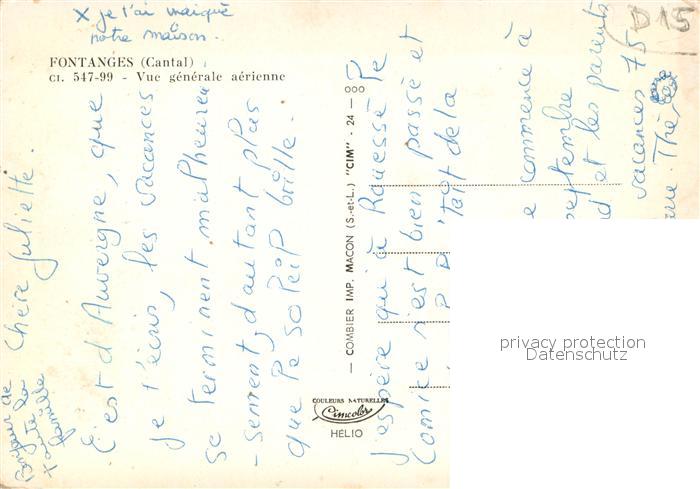 x je t'ai marqué
notre maison.
FONTANGES (Cantal)
CI. 547-99 - Vue générale aérienne
Chère Juliette.
C'est d'Auvergne, que
je t'écris, les vacances
se terminent malheureu
-sement, d'autant plus
que le soleil brille.
J'espère qu'à Rouessé le
Comice s'est bien passé et
fait de la
commence à
septembre
et les parents
vacances 75
Bonjour de
toute la
famille
— COMBIER IMP. MACON (S.-et-L.) "CIM" - 24 —
COULEURS NATURELLES
Cimcolor
HÉLIO
D15
privacy protection
Datenschutz